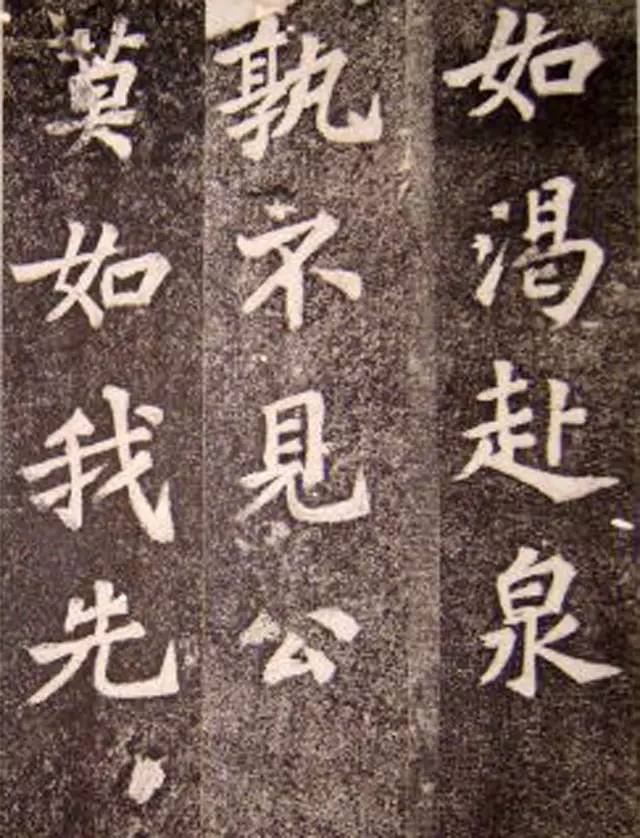 如渴赴泉
孰不見公
莫如我先